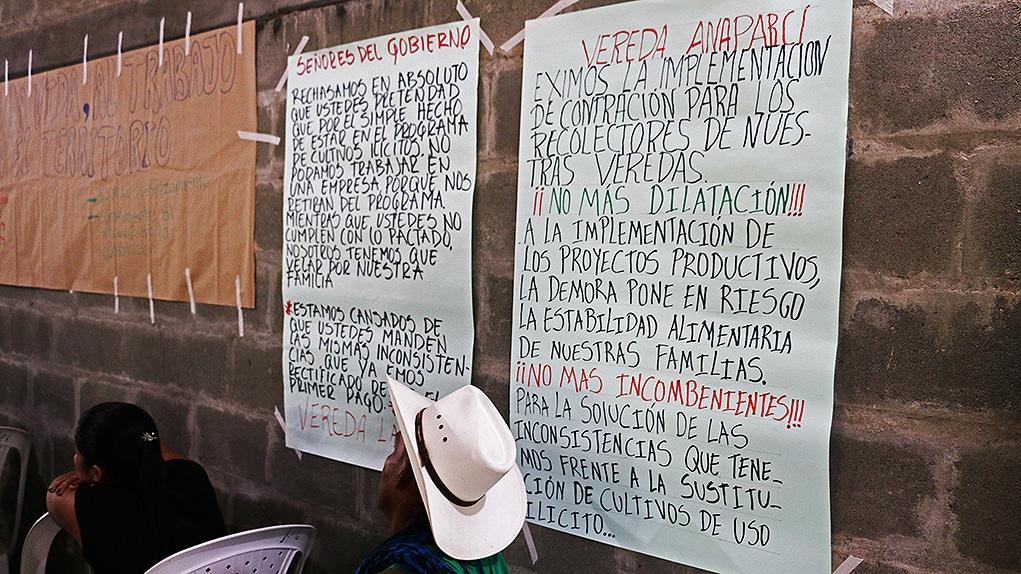 TRABAJO
TERRITORIO
SEÑORES DEL GOBIERNO
RECHASAMOS EN ABSOLUTO
QUE USTEDES PRETENDAD
QUE POR EL SIMPLE HECHO
DE ESTAR EN EL PROGRAMA
DE CULTIVOS ILICITOS, NO
PODAMOS TRABAJAR EN
UNA EMPRESA, PORQUE NOS
RETIRAN DEL PROGRAMA.
MIENTRAS QUE USTEDES NO
CUMPLEN CON LO PACTADO,
NOSOTROS TENEMOS QUE
VELAR POR NUESTRA
FAMILIA
*ESTAMOS CANSADOS DE
QUE USTEDES MANDEN
LAS MISMAS INCONSISTEN-
CIAS QUE YA EMOS
RECTIFICADO DESDE EL
PRIMER PAGO.
VEREDA
VEREDA ANAPARCÍ
EXIMOS LA IMPLEMENTACION
DE CONTRACIÓN PARA LOS
RECOLECTORES DE NUES-
TRAS VEREDAS.
¡¡NO MÁS DILATACIÓN!!!
A LA IMPLEMENTACIÓN DE
LOS PROYECTOS PRODUCTIVOS,
LA DEMORA PONE EN RIESGO
LA ESTABILIDAD ALIMENTARIA
DE NUESTRAS FAMILIAS.
¡¡NO MAS INCOMBENIENTES!!!
PARA LA SOLUCIÓN DE LAS
INCONSISTENCIAS QUE TENE-
MOS FRENTE A LA SUSTITU-
CIÓN DE CULTIVOS DE USO
ILICITO...